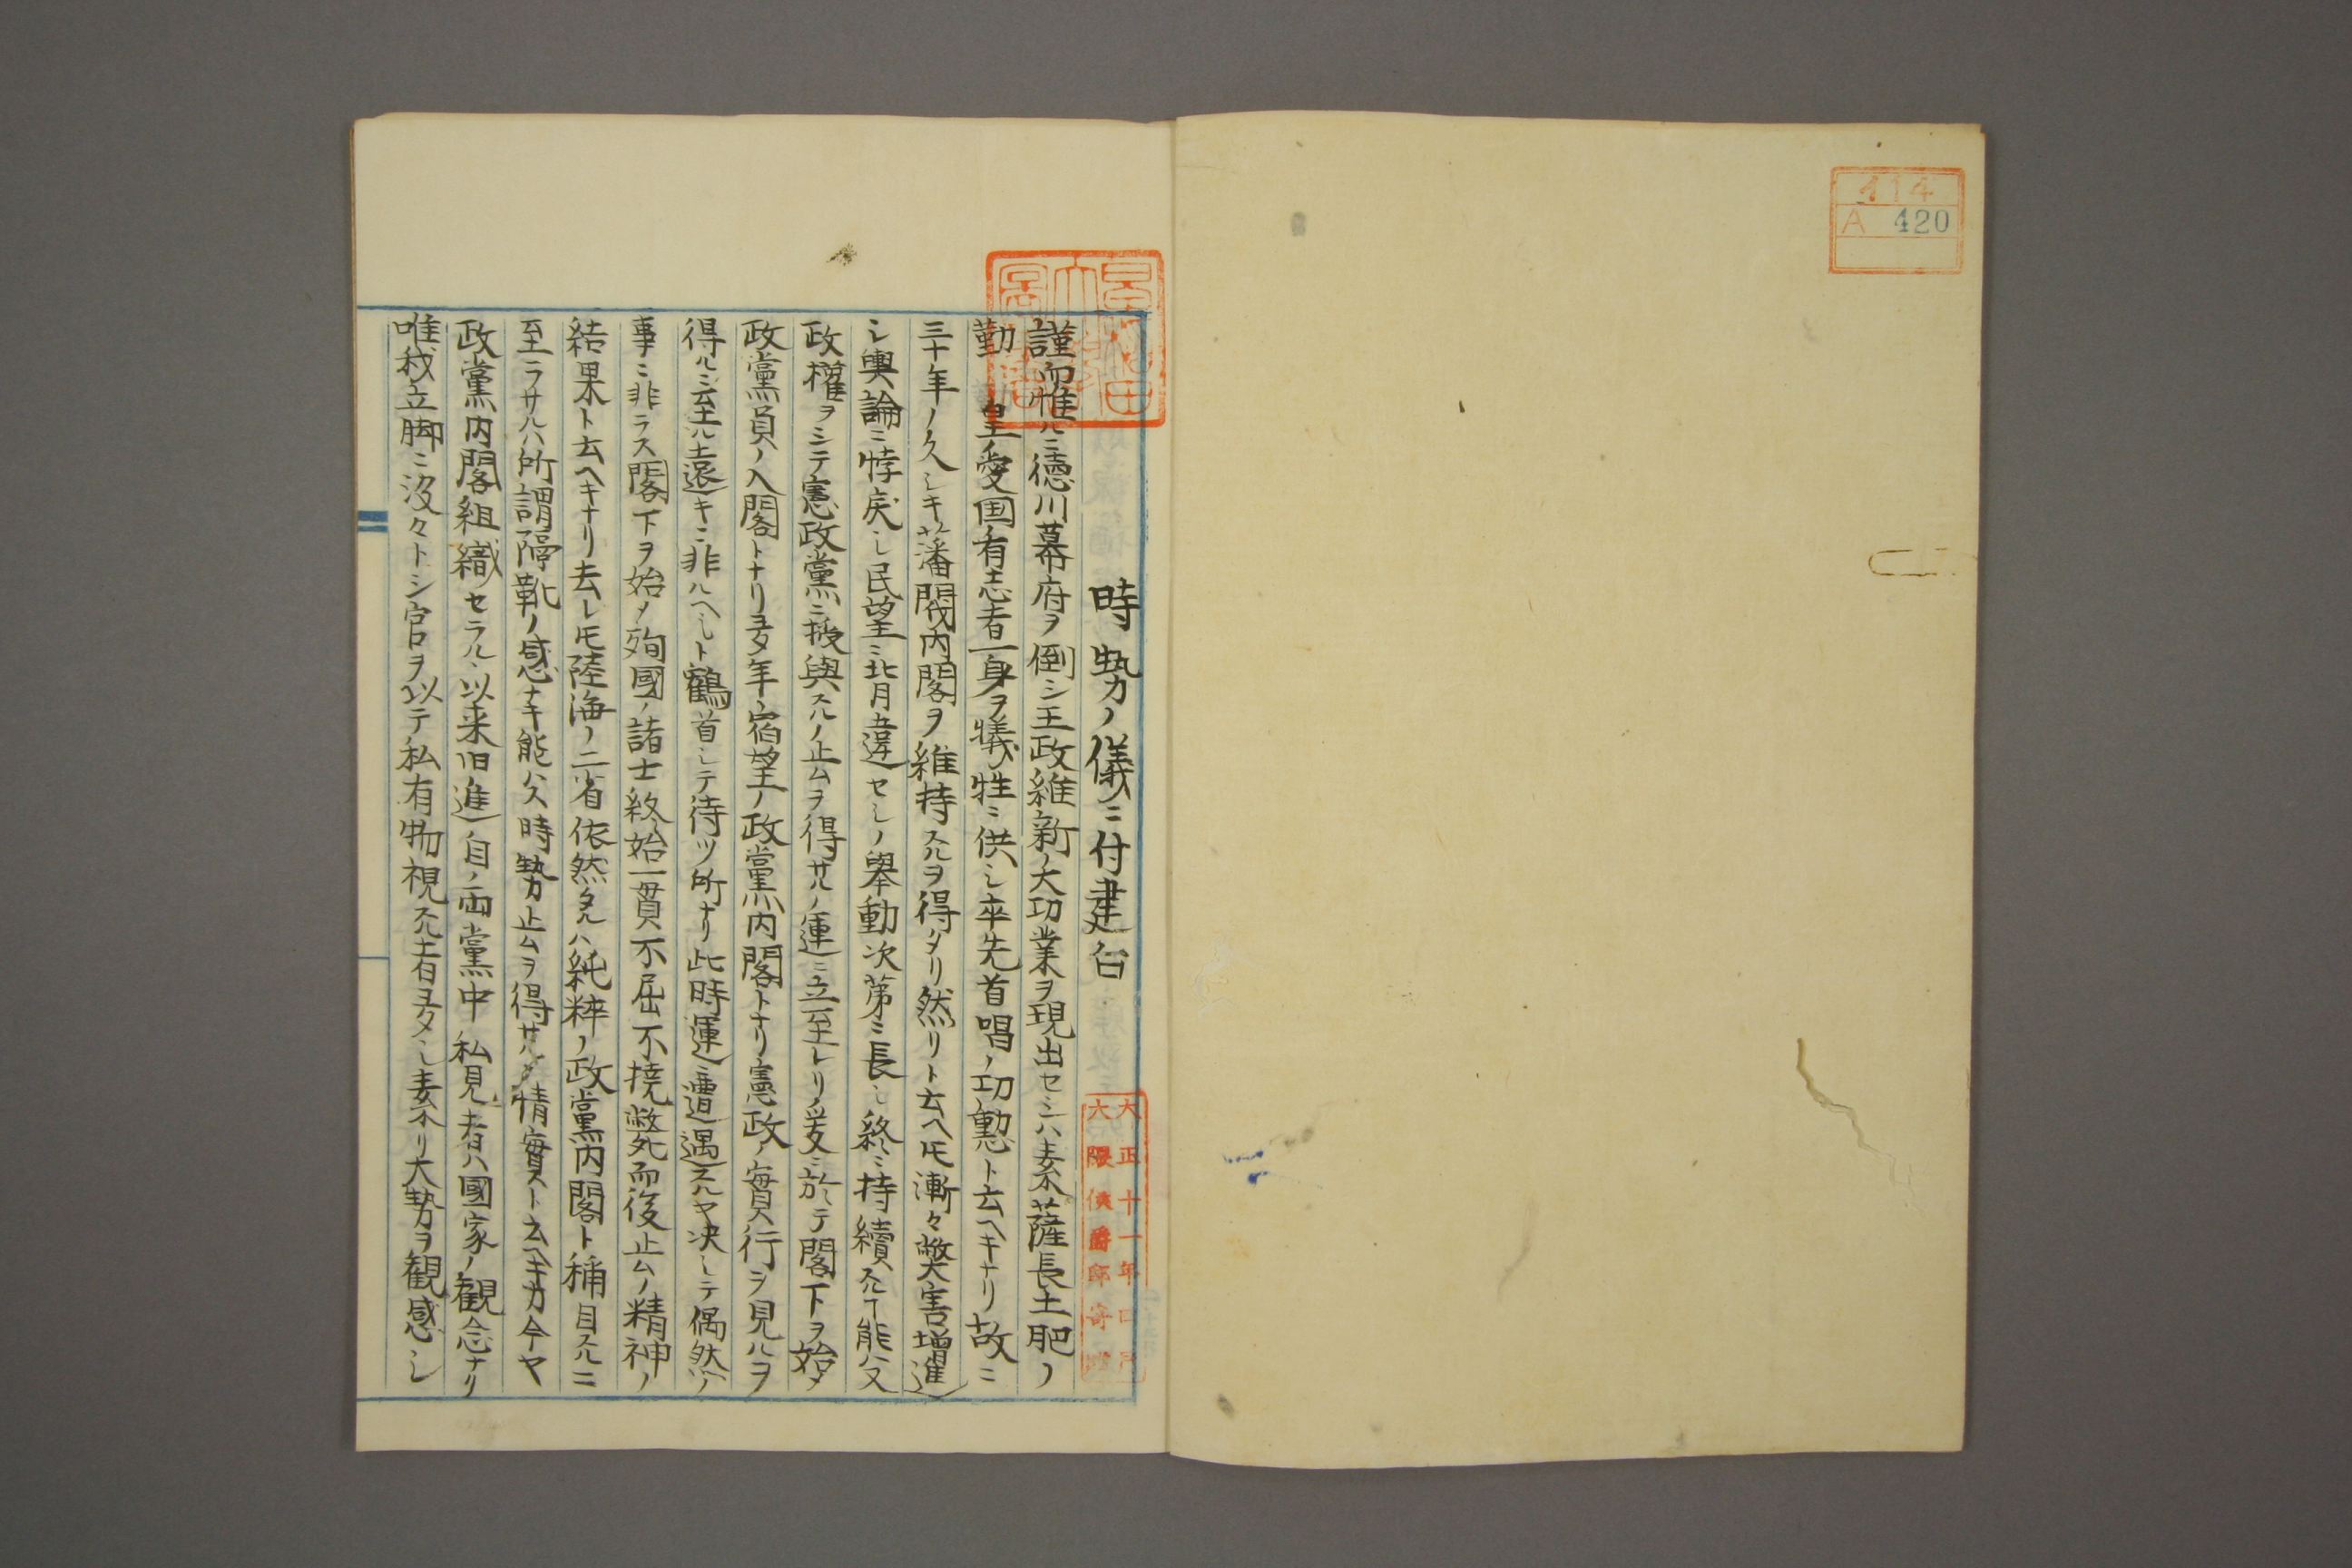 414
A 420
時勢ノ儀ニ付建白
謹而惟ルニ徳川幕府ヲ倒シ王政維新ノ大功業ヲ現出セシハ素薩長土肥ノ
勤 皇ノ愛国有志者一身ヲ犠牲ニ供シ卒先首唱ノ功勲ト云ヘキナリ故ニ
三十年ノ久シキ藩閥内閣ヲ維持スルヲ得タリ然リト云ヘ𪜈漸々弊害増進
シ輿論ニ悖戻シ民望ニ背違セシノ挙動次第ニ長シ終ニ持続スル能ハス
政権ヲシテ憲政党ニ授與スルノ止ムヲ得サルノ運ニ立至レリ爰ニ於テ閣下ヲ始メ
政黨員ノ入閣トナリ多年ノ宿望ノ政黨内閣トナリ憲政ノ實行ヲ見ルヲ
得ルニ至ル遠キニ非ルヘシト鶴首シテ待ツ所ナリ此時運ニ遭遇スルヤ決シテ偶然ノ
事ニ非ラス閣下ヲ始メ殉國ノ諸士終始一貫不屈不撓斃而後止ムノ精神ノ
結果ト云ヘキナリ去レ𪜈陸海ノ二省依然タルハ純粋ノ政黨内閣ト稱目スルニ
至ラサルハ所謂隔靴ノ感ナキ能ハス時勢止ムヲ得サルノ情實ト云ヘキカ今ヤ
政黨内閣組織セラル、以来旧進自ノ両黨中私見者ハ國家ノ観念ナリ
唯我立脚ニ汲々トシ官ヲ以テ私有物視スル者多シ素ヨリ大勢ヲ観感シ
大正十一年
大隈侯爵邸寄贈